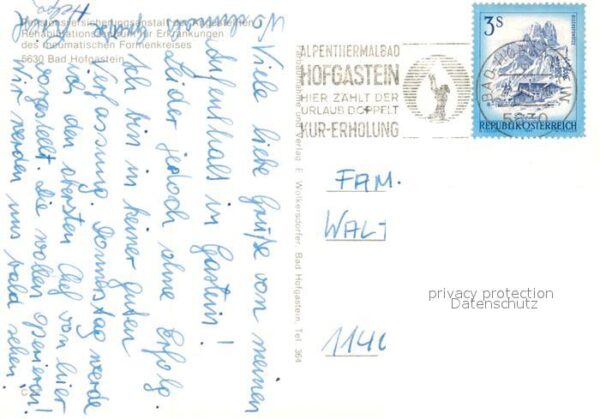 Pensionsversicherungsanstalt der Angestellten
Rehabilitationszentrum für Erkrankungen
des rheumatischen Formenkreises
5630 Bad Hofgastein
Viele liebe Grüße von meinen
Aufenthalt in Gastein!
Leider jedoch ohne Erfolg.
Ich bin in keiner guten
Verfassung. Donnerstag werde
ich den obersten Chef von hier
vorgestellt. Die wollen operieren!
Wir werden uns bald sehen!
Aufnahme und Verlag F. Wolkersdorfer, Bad Hofgastein, Tel. 364
ALPENTHERMALBAD
HOFGASTEIN
HIER ZÄHLT DER
URLAUB DOPPELT
KUR-ERHOLUNG
3S
REPUBLIK ÖSTERREICH
BAD HOFGASTEIN
5630
FAM.
WALT
1140
privacy protection
Datenschutz